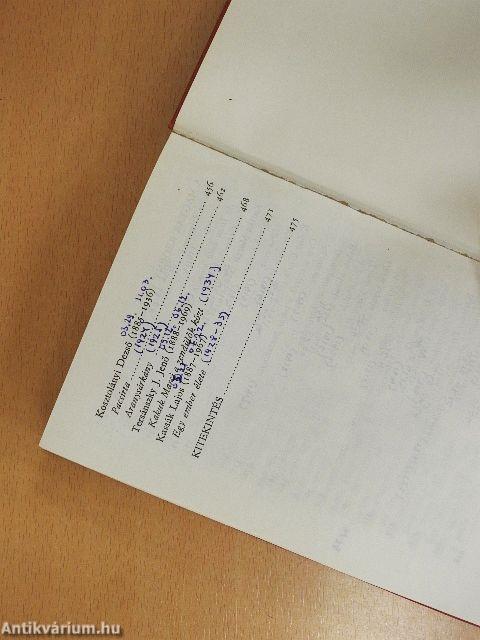 03.29. 11.03.
Kosztolányi Dezső (1885–1936)
Pacsirta ..... (1924) ..... 456
Aranysárkány (1925) ..... 462
03.12. 05.12.
Tersánszky J. Jenő (1888–1969)
Kakuk Marci a zendülők közt (1934.) ..... 468
03.21. 07.22.
Kassák Lajos (1887–1967)
Egy ember élete (1928-35) ..... 471
KITEKINTÉS ..... 475
Antikvárium.hu